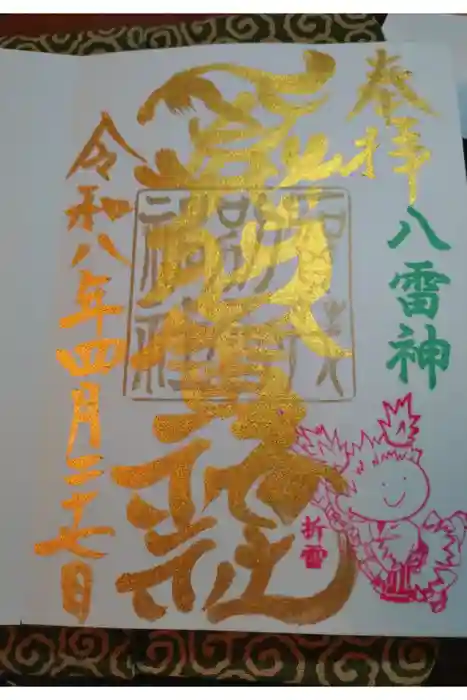 奉拝
八雷神
折雷
賀茂
別雷
神社
令和八年四月二十七日